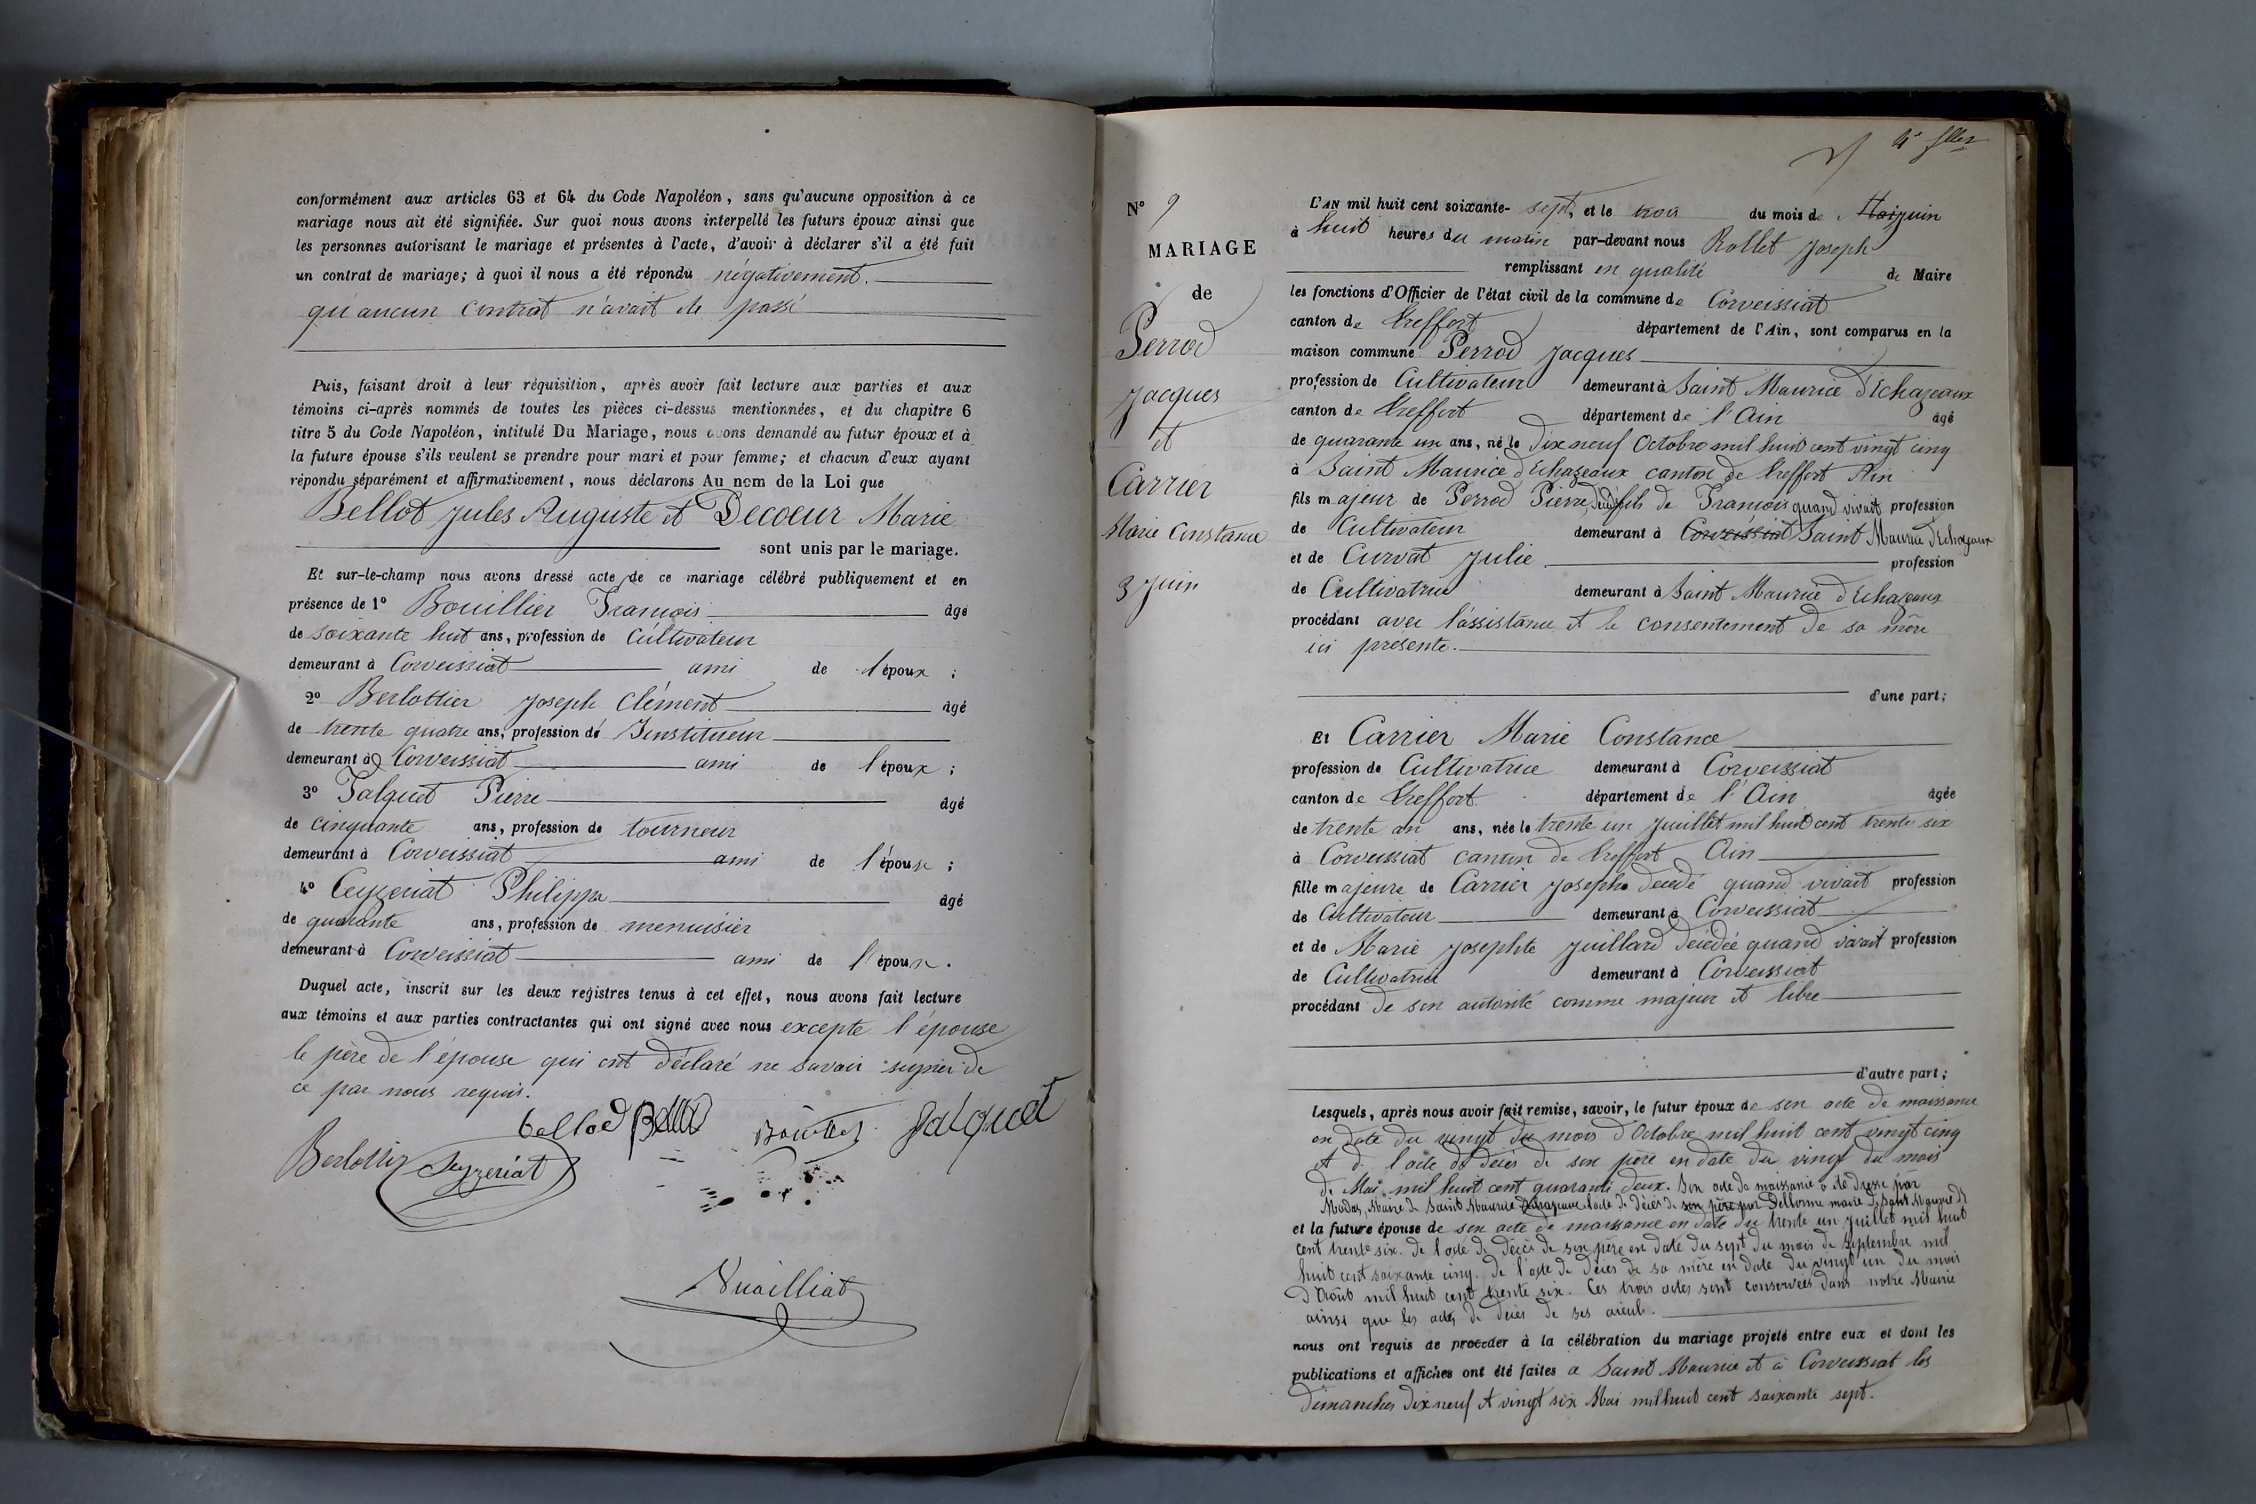 conformément aux articles 63 et 64 du Code Napoléon, sans qu'aucune opposition à ce
mariage nous ait été signifiée. Sur quoi nous avons interpellé les futurs époux ainsi que
les personnes autorisant le mariage et présentes à l'acte, d'avoir à déclarer s'il a été fait
un contrat de mariage; à quoi il nous a été répondu négativement.
qu'aucun contrat n'avait été passé
Puis, faisant droit à leur réquisition, après avoir fait lecture aux parties et aux
témoins ci-après nommés de toutes les pièces ci-dessus mentionnées, et du chapitre 6
titre 5 du Code Napoléon, intitulé Du Mariage, nous avons demandé au futur époux et à
la future épouse s'ils veulent se prendre pour mari et pour femme; et chacun d'eux ayant
répondu séparément et affirmativement, nous déclarons Au nom de la Loi que
Bellot Jules Auguste et Decoeur Marie
sont unis par le mariage.
Et sur-le-champ nous avons dressé acte de ce mariage célébré publiquement et en
présence de 1° Bouillier François âgé
de soixante huit ans, profession de Cultivateur
demeurant à Corveissiat ami de l'époux ;
2° Berlottier Joseph Clément âgé
de trente quatre ans, profession de Instituteur
demeurant à Corveissiat ami de l'époux ;
3° Falquet Pierre âgé
de cinquante ans, profession de tourneur
demeurant à Corveissiat ami de l'épouse ;
4° Ceyzeriat Philippe âgé
de quarante ans, profession de menuisier
demeurant à Corveissiat ami de l'épouse.
Duquel acte, inscrit sur les deux registres tenus à cet effet, nous avons fait lecture
aux témoins et aux parties contractantes qui ont signé avec nous excepte l'épouse
le père de l'épouse qui ont déclaré ne savoir signer de
ce par nous requis.
bellod Bouillier Falquet
Berlottier Seyzeriat
Vuailliat
4e fllet
N° 9
MARIAGE
de
Perrod
Jacques
et
Carrier
Marie Constance
3 Juin
L'AN mil huit cent soixante-sept, et le trois du mois de Mai juin
à huit heures du matin par-devant nous Rollet Joseph
remplissant en qualité de Maire
les fonctions d'Officier de l'état civil de la commune de Corveissiat
canton de Treffort département de l'Ain, sont comparus en la
maison commune Perrod Jacques
profession de Cultivateur demeurant à Saint Maurice d'Echazeaux
canton de Treffort département de l'Ain âgé
de quarante un ans, né le dix neuf Octobre mil huit cent vingt cinq
à Saint Maurice d'Echazeaux canton de Treffort Ain
fils majeur de Perrod Pierre décédé fils de François quand vivait profession
de Cultivateur demeurant à Corveissiat Saint Maurice d'Echazeaux
et de Curvat Julie profession
de Cultivatrice demeurant à Saint Maurice d'Echazeaux
procédant avec l'assistance et le consentement de sa mère
ici présente.
d'une part;
Et Carrier Marie Constance
profession de Cultivatrice demeurant à Corveissiat
canton de Treffort département de l'Ain âgée
de trente an ans, née le trente un Juillet mil huit cent trente six
à Corveissiat canton de Treffort Ain
fille majeure de Carrier Joseph décédé quand vivait profession
de Cultivateur demeurant à Corveissiat
et de Marie Josephte Juillard décédée quand vivait profession
de Cultivatrice demeurant à Corveissiat
procédant de son autorité comme majeur et libre
d'autre part;
Lesquels, après nous avoir fait remise, savoir, le futur époux de son acte de naissance
en date du vingt du mois d'Octobre mil huit cent vingt cinq
et de l'acte de décès de son père en date du vingt du mois
de Mai mil huit cent quarante deux. Son acte de naissance a été dressé par
Modas, Maire de Saint Maurice d'Echazeaux l'acte de décès de son père par Dellorme maire de Saint Maurice d'E
et la future épouse de son acte de naissance en date du trente un Juillet mil huit
cent trente six. de l'acte de décès de son père en date du sept du mois de Septembre mil
huit cent soixante cinq. de l'acte de décès de sa mère en date du vingt un du mois
d'Août mil huit cent trente six. Ces trois actes sont conservés dans notre Mairie
ainsi que les actes de décès de ses aïeuls.
nous ont requis de procéder à la célébration du mariage projeté entre eux et dont les
publications et affiches ont été faites à Saint Maurice et à Corveissiat les
dimanches dix neuf et vingt six Mai mil huit cent soixante sept.